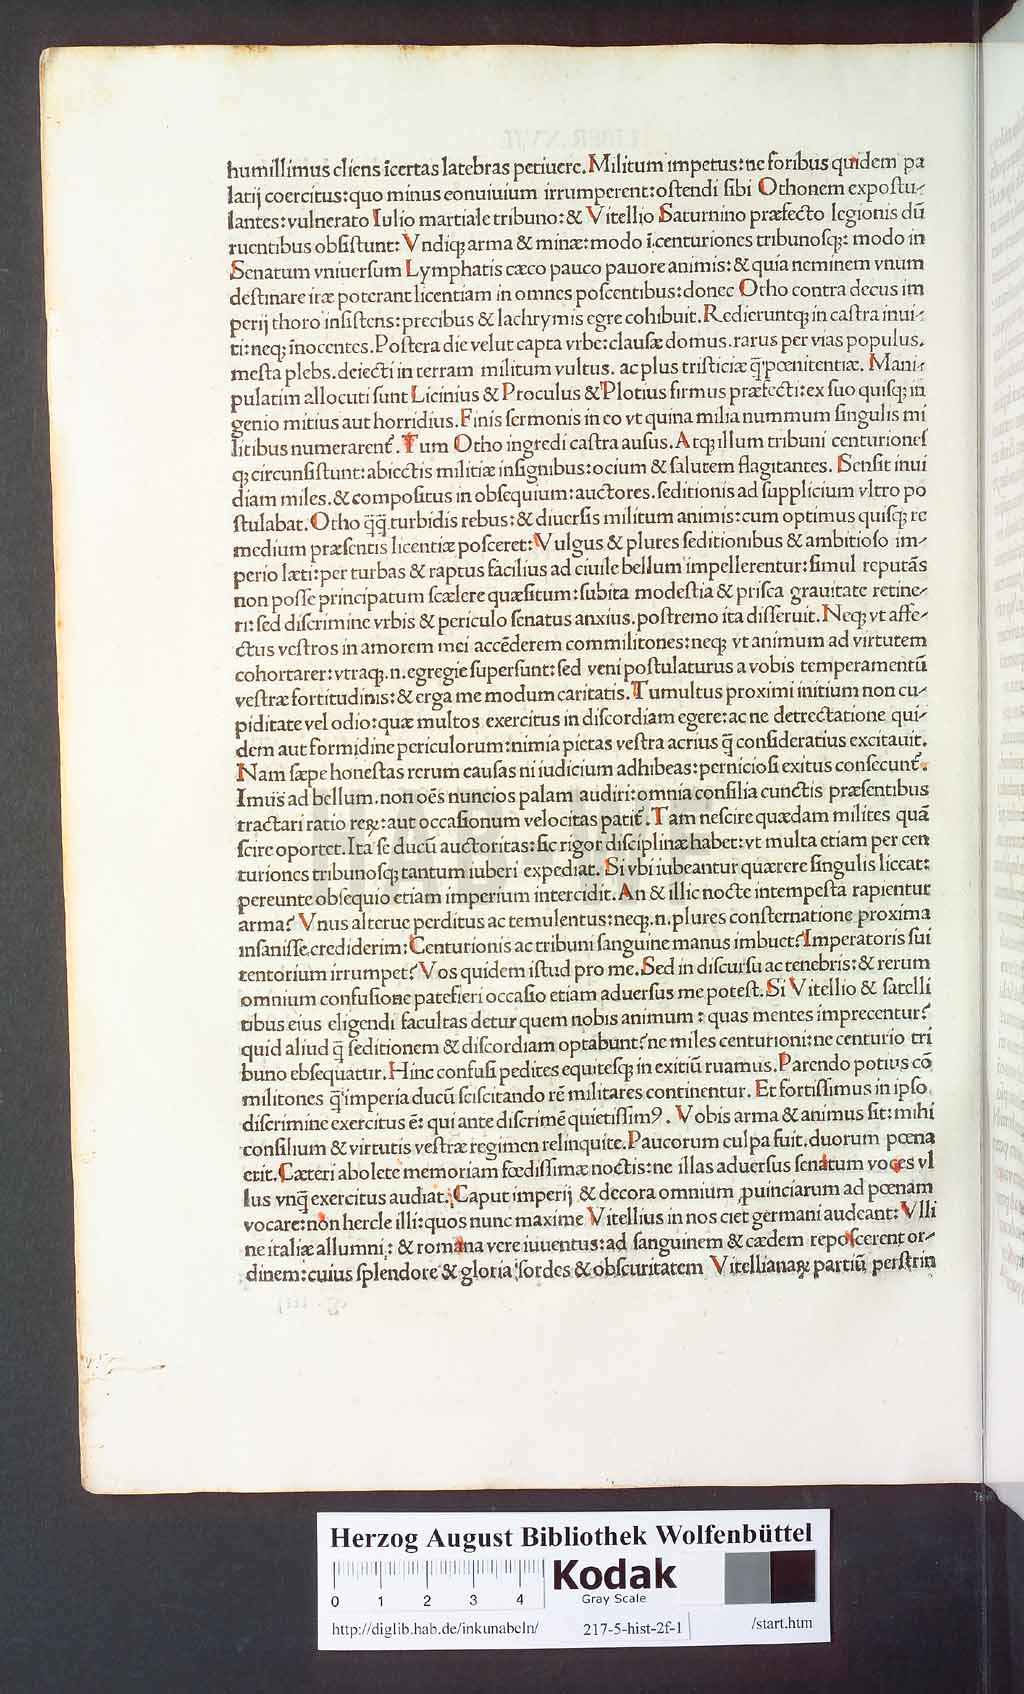 humillimus cliens īcertas latebras petiuere. Militum impetus: ne foribus quidem pa
latij coercitus: quo minus conuiuium irrumperent: ostendi sibi Othonem expostu-
lantes: vulnerato Iulio martiale tribuno: & Vitellio Saturnino præfecto legionis dū
ruentibus obsistunt: Vndiqꝫ arma & minæ: modo ī.centuriones tribunosqꝫ: modo in
Senatum vniuersum Lymphatis cæco pauco pauore animis: & quia neminem vnum
destinare iræ poterant licentiam in omnes poscentibus: donec Otho contra decus im
perij thoro insistens: precibus & lachrymis egre cohibuit. Redieruntqꝫ in castra inui-
ti: neqꝫ īnocentes. Postera die velut capta vrbe: clausæ domus. rarus per vias populus.
mesta plebs. deiecti in terram militum vultus. ac plus tristiciæ q̄ pœnitentiæ. Mani-
pulatim allocuti sunt Licinius & Proculus & Plotius firmus præfecti: ex suo quisqꝫ in
genio mitius aut horridius. Finis sermonis in eo vt quina milia nummum singulis mi
litibus numerarent̄. Tum Otho ingredi castra ausus. Atqꝫ illum tribuni centurionef
qꝫ circunsistunt: abiectis militiæ insignibus: ocium & salutem flagitantes. Sensit inui
diam miles. & compositus in obsequium: auctores. seditionis ad supplicium vltro po
stulabat. Otho q̄q̄ turbidis rebus: & diuersis militum animis: cum optimus quisqꝫ re
medium præsentis licentiæ posceret: Vulgus & plures seditionibus & ambitioso im-
perio læti: per turbas & raptus facilius ad ciuile bellum impellerentur: simul reputās
non posse principatum scælere quæsitum: subita modestia & prisca grauitate retine-
ri: sed discrimine vrbis & periculo senatus anxius. postremo ita disseruit. Neqꝫ vt affe-
ctus vestros in amorem mei accēderem commilitones: neqꝫ vt animum ad virtutem
cohortarer: vtraqꝫ .n. egregie supersunt: sed veni postulaturus a vobis temperamentū
vestræ fortitudinis: & erga me modum caritatis. Tumultus proximi initium non cu-
piditate vel odio: quæ multos exercitus in discordiam egere: ac ne detrectatione qui-
dem aut formidine periculorum: nimia pietas vestra acrius q̄ consideratius excitauit.
Nam sæpe honestas rerum causas ni iudicium adhibeas: perniciosi exitus consecunt̄.
Imus ad bellum. non oēs nuncios palam audiri: omnia consilia cunctis præsentibus
tractari ratio reꝝ: aut occasionum velocitas patit̄. Tam nescire quædam milites quā
scire oportet. Ita se ducū auctoritas: sic rigor disciplinæ habet: vt multa etiam per cen
turiones tribunosqꝫ tantum iuberi expediat. Si vbi iubeantur quærere singulis liceat:
pereunte obsequio etiam imperium intercidit. An & illic nocte intempesta rapientur
arma? Vnus alterue perditus ac temulentus: neqꝫ .n. plures consternatione proxima
insanisse. crediderim: Centurionis ac tribuni sanguine manus imbuet? Imperatoris sui
tentorium irrumpet? Vos quidem istud pro me. Sed in discursu ac tenebris: & rerum
omnium confusione patefieri occasio etiam aduersus me potest. Si Vitellio & satelli
tibus eius eligendi facultas detur quem nobis animum: quas mentes imprecentur?
quid aliud q̄ seditionem & discordiam optabunt? ne miles centurioni: ne centurio tri
buno obsequatur. Hinc confusi pedites equitesqꝫ in exitiū ruamus. Parendo potius cō
militones q̄ imperia ducū sciscitando rē militares continentur. Et fortissimus in ipso
discrimine exercitus ē: qui ante discrimē quietissimꝰ. Vobis arma & animus sit: mihi
consilium & virtutis vestræ regimen relinquite. Paucorum culpa fuit. duorum pœna
erit. Cæteri abolete memoriam fœdissimæ noctis: ne illas aduersus senatum voces vl
lus vnq̄ exercitus audiat. Caput imperij & decora omnium ꝓuinciarum ad pœnam
vocare: non hercle illi: quos nunc maxime Vitellius in nos ciet germani audeant: Vlli
ne italiæ allumni: & romana vere iuuentus: ad sanguinem & cædem reposcerent or-
dinem: cuius splendore & gloria sordes & obscuritatem Vitellianaꝝ partiū perstrin
Herzog August Bibliothek Wolfenbüttel
0 1 2 3 4
Kodak
Gray Scale
http://diglib.hab.de/inkunabeln/ 217-5-hist-2f-1 /start.htm
HAB-WF